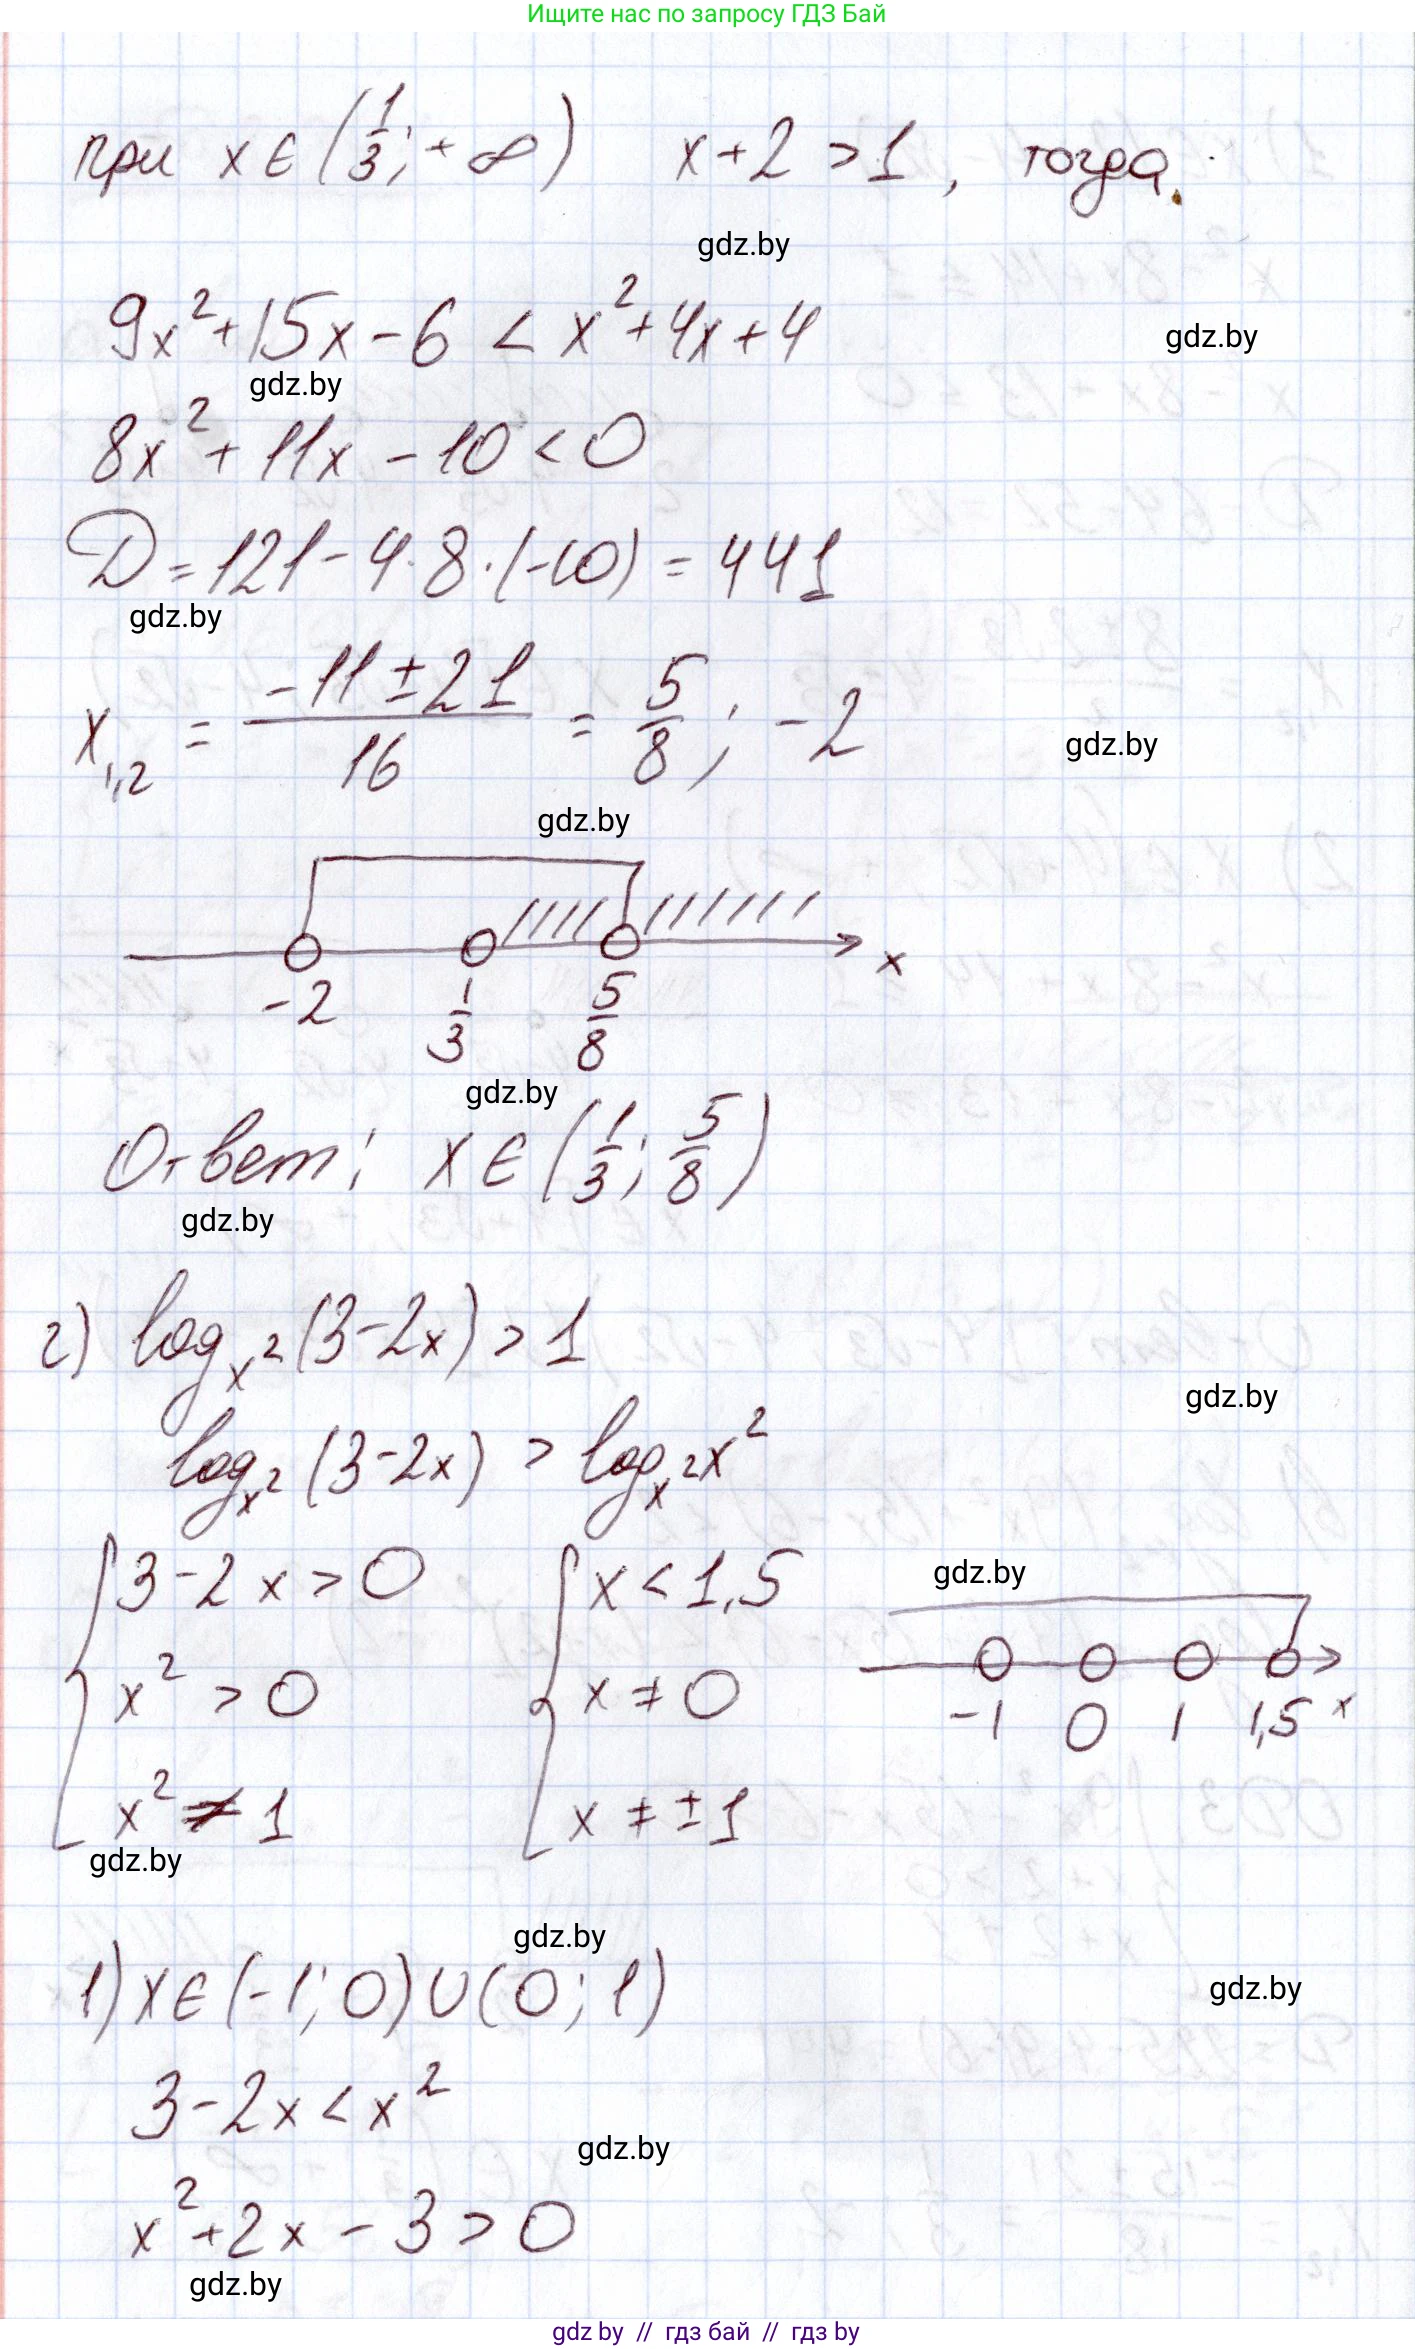 Ищите нас по запросу ГДЗ Бай
при x ∈ (1/3; +∞) x+2 > 1, тогда
gdz.by
9x² + 15x - 6 < x² + 4x + 4
gdz.by
gdz.by
8x² + 11x - 10 < 0
D = 121 - 4·8·(-10) = 441
gdz.by
x₁,₂ = (-11 ± 21)/16 = 5/8; -2
gdz.by
gdz.by
x
-2 1/3 5/8
gdz.by
Ответ: x ∈ (1/3; 5/8)
gdz.by
г) log_x² (3-2x) > 1
gdz.by
log_x² (3-2x) > log_x² x²
{ 3-2x > 0 { x < 1,5
gdz.by
x² > 0 x ≠ 0
-1 0 1 1,5 x
x² ≠ 1 x ≠ ±1
gdz.by
gdz.by
1) x ∈ (-1; 0) ∪ (0; 1)
gdz.by
3-2x < x²
gdz.by
x² + 2x - 3 > 0
gdz.by
gdz by // гдз бай // гдз by